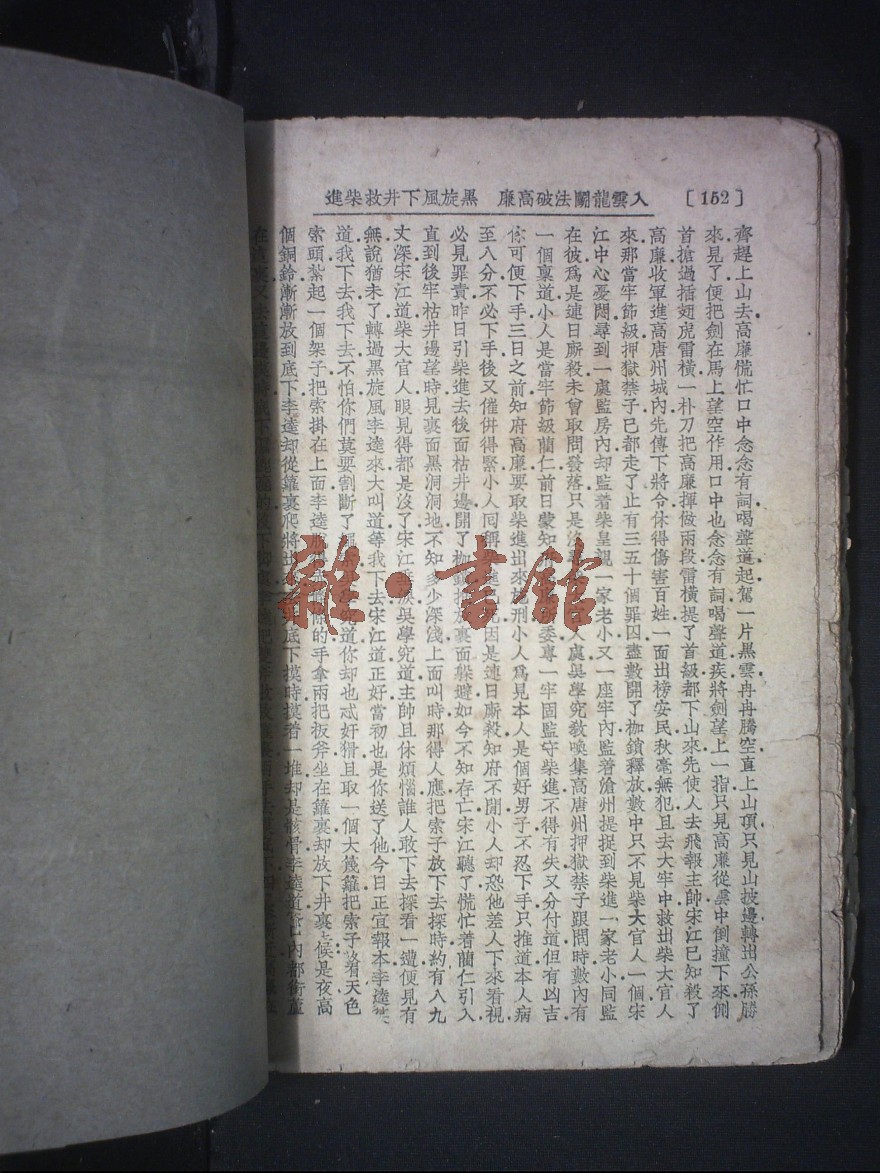 [152]
入雲龍鬭法破高廉　黑旋風下井救柴進
齊趕上山去高廉慌忙口中念念有詞喝聲道起駕一片黑雲冉冉騰空直上山頂只見山坡邊轉出公孫勝
來見了便把劍在馬上望空作用口中也念念有詞喝聲道疾將劍望上一指只見高廉從雲中倒撞下來側
首搶過插翅虎雷橫一朴刀把高廉揮做兩段雷橫提了首級都下山來先使人去飛報主帥宋江已知殺了
高廉收軍進高唐州城內先傳下將令休得傷害百姓一面出榜安民秋毫無犯且去大牢中救出柴大官人
來那當牢節級押獄禁子已都走了止有三五十個罪囚盡數開了枷鎖釋放數中只不見柴大官人一個宋
江中心憂悶尋到一處監房內却監着柴皇親一家老小又一座牢內監着滄州提捉到柴進一家老小同監
在彼爲是連日廝殺未曾取問發落只是沒 人處吳學究教喚集高唐州押獄禁子跟問時數內有
一個稟道小人是當牢節級藺仁前日蒙知 委專一牢固監守柴進不得有失又分付道但有凶吉
你可便下手三日之前知府高廉要取柴進出來 刑小人爲見本人是個好男子不忍下手只推道本人病
至八分不必下手後又催併得緊小人回稱 進 死因是連日廝殺知府不閒小人却恐他差人下來看視
必見罪責昨日引柴進去後面枯井邊開了枷鎖推放裏面躱避如今不知存亡宋江聽了慌忙着藺仁引入
直到後牢枯井邊望時見裏面黑洞洞地不知多少深淺上面叫時那得人應把索子放下去探時約有八九
丈深宋江道柴大官人眼見得都是沒了宋江垂淚吳學究道主帥且休煩惱誰人敢下去探看一遭便見有
無說猶未了轉過黑旋風李逵來大叫道等我下去宋江道正好當初也是你送了他今日正宜報本李逵笑
道我下去我下去不怕你們莫要割斷了繩 道你却也忒奸猾且取一個大篾籮把索子 天色
索頭紮起一個架子把索掛在上面李逵 的手拿兩把板斧坐在籮裏却放下井裏去 候是夜高
個銅鈴漸漸放到底下李逵却從籮裏爬將出 底下摸時摸着一堆却是骸骨李逵道 內都銜蘆